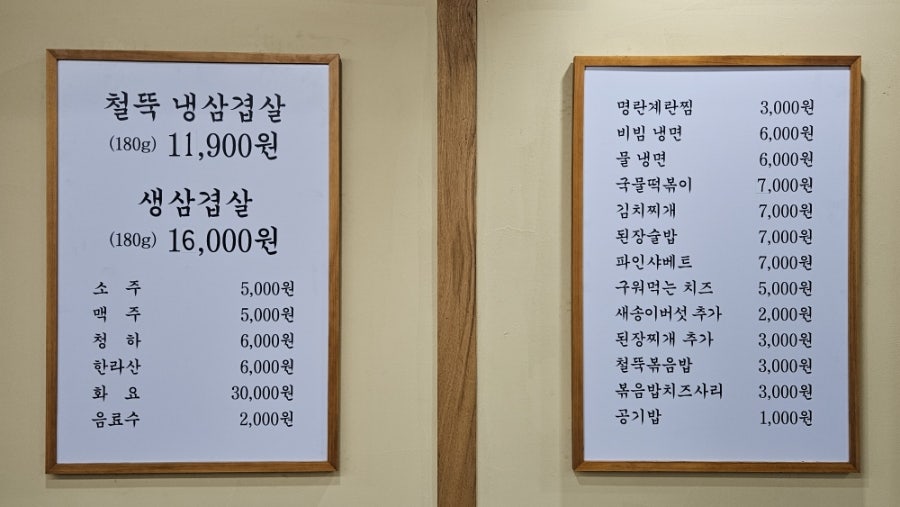 철뚝 냉삼겹살
(180g) 11,900원
생삼겹살
(180g) 16,000원
소 주 5,000원
맥 주 5,000원
청 하 6,000원
한라산 6,000원
화 요 30,000원
음료수 2,000원
명란계란찜 3,000원
비빔 냉면 6,000원
물 냉면 6,000원
국물떡볶이 7,000원
김치찌개 7,000원
된장술밥 7,000원
파인샤베트 7,000원
구워먹는 치즈 5,000원
새송이버섯 추가 2,000원
된장찌개 추가 3,000원
철뚝볶음밥 3,000원
볶음밥치즈사리 3,000원
공기밥 1,000원